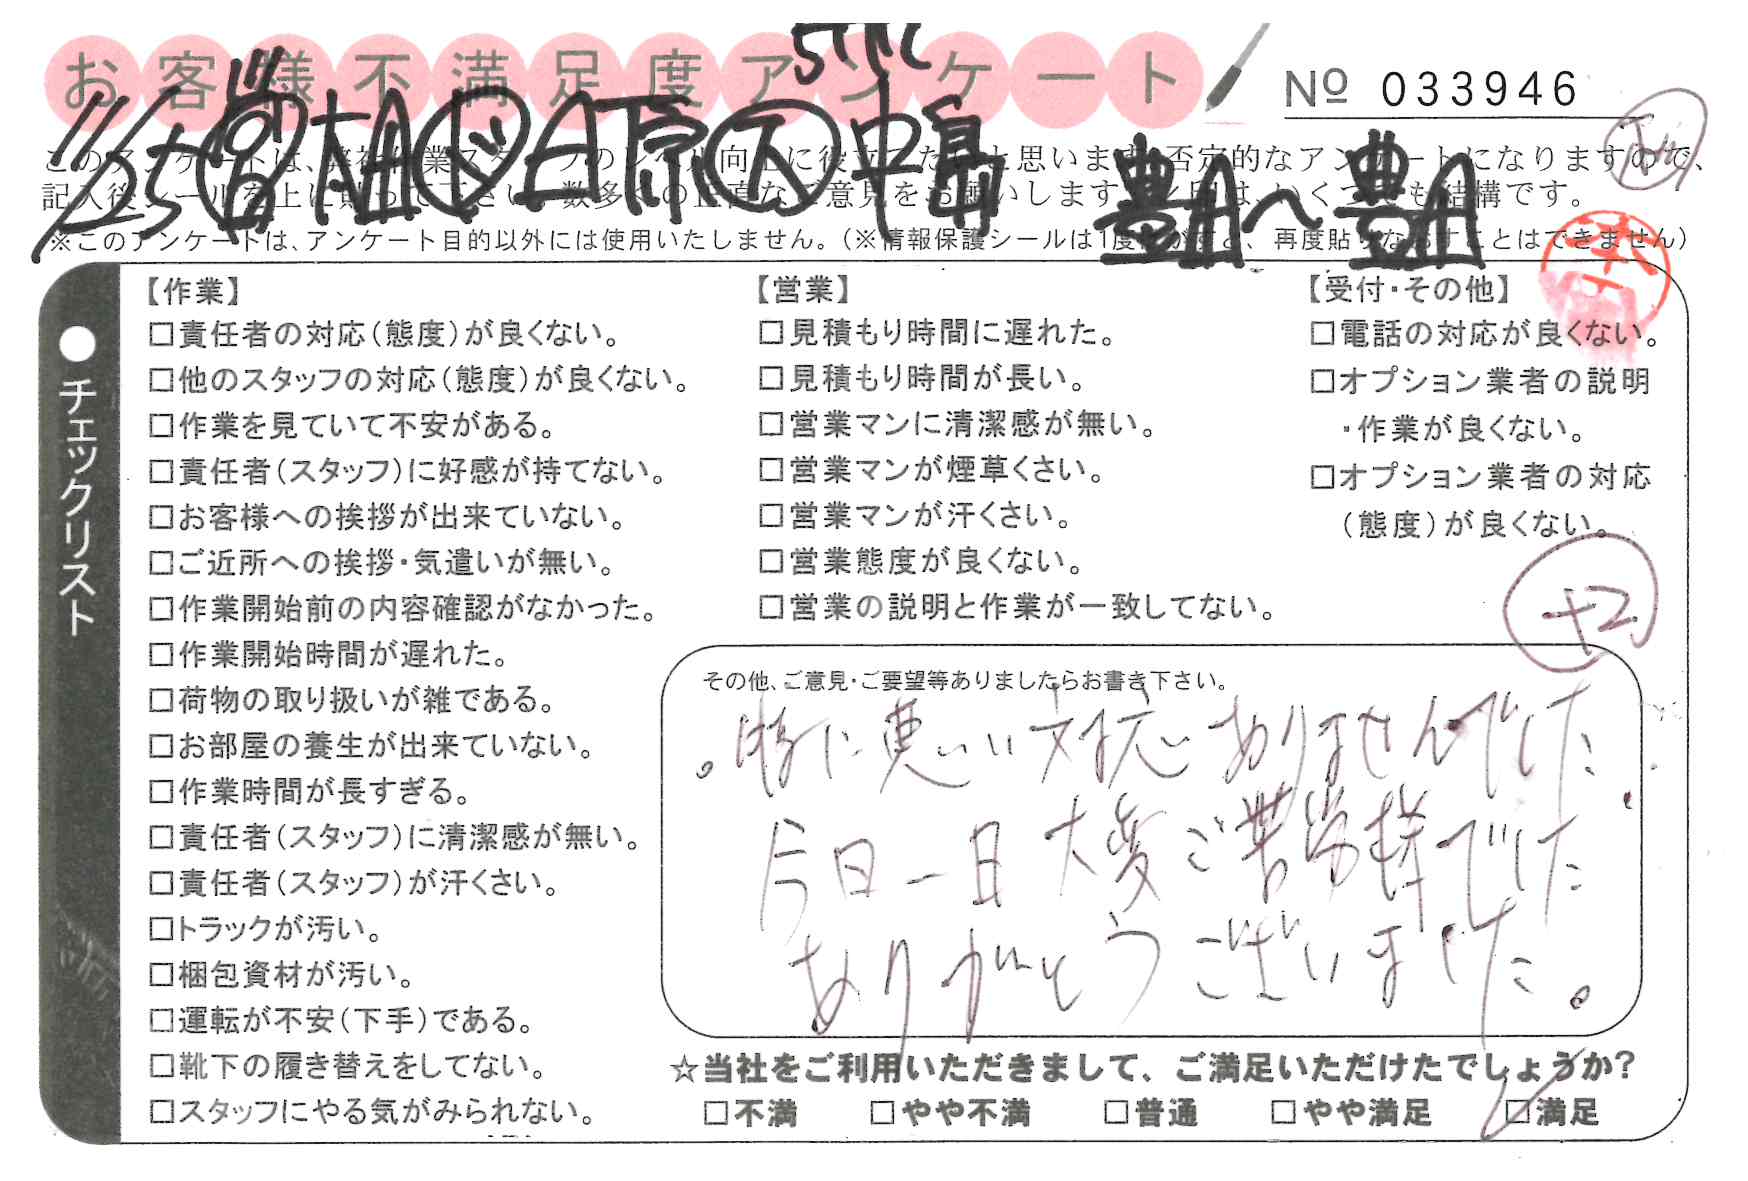 お客様不満足度アンケート
№ 033946
11/25 営 植田 ド 白原 ス 中島
豊田へ豊田
※このアンケートは、アンケート目的以外には使用いたしません。(※情報保護シールは1度はがすと、再度貼りなおすことはできません)
●チェックリスト
【作業】
□責任者の対応(態度)が良くない。
□他のスタッフの対応(態度)が良くない。
□作業を見ていて不安がある。
□責任者(スタッフ)に好感が持てない。
□お客様への挨拶が出来ていない。
□ご近所への挨拶・気遣いが無い。
□作業開始前の内容確認がなかった。
□作業開始時間が遅れた。
□荷物の取り扱いが雑である。
□お部屋の養生が出来ていない。
□作業時間が長すぎる。
□責任者(スタッフ)に清潔感が無い。
□責任者(スタッフ)が汗くさい。
□トラックが汚い。
□梱包資材が汚い。
□運転が不安(下手)である。
□靴下の履き替えをしてない。
□スタッフにやる気がみられない。
【営業】
□見積もり時間に遅れた。
□見積もり時間が長い。
□営業マンに清潔感が無い。
□営業マンが煙草くさい。
□営業マンが汗くさい。
□営業態度が良くない。
□営業の説明と作業が一致してない。
【受付・その他】
□電話の対応が良くない。
□オプション業者の説明
・作業が良くない。
□オプション業者の対応
(態度)が良くない。
+2
その他、ご意見・ご要望等ありましたらお書き下さい。
。特に悪いい対応ありませんでした.
今日一日大変ご苦労様でした
ありがとうございました。
☆当社をご利用いただきまして、ご満足いただけたでしょうか?
□不満 □やや不満 □普通 □やや満足 ☑満足